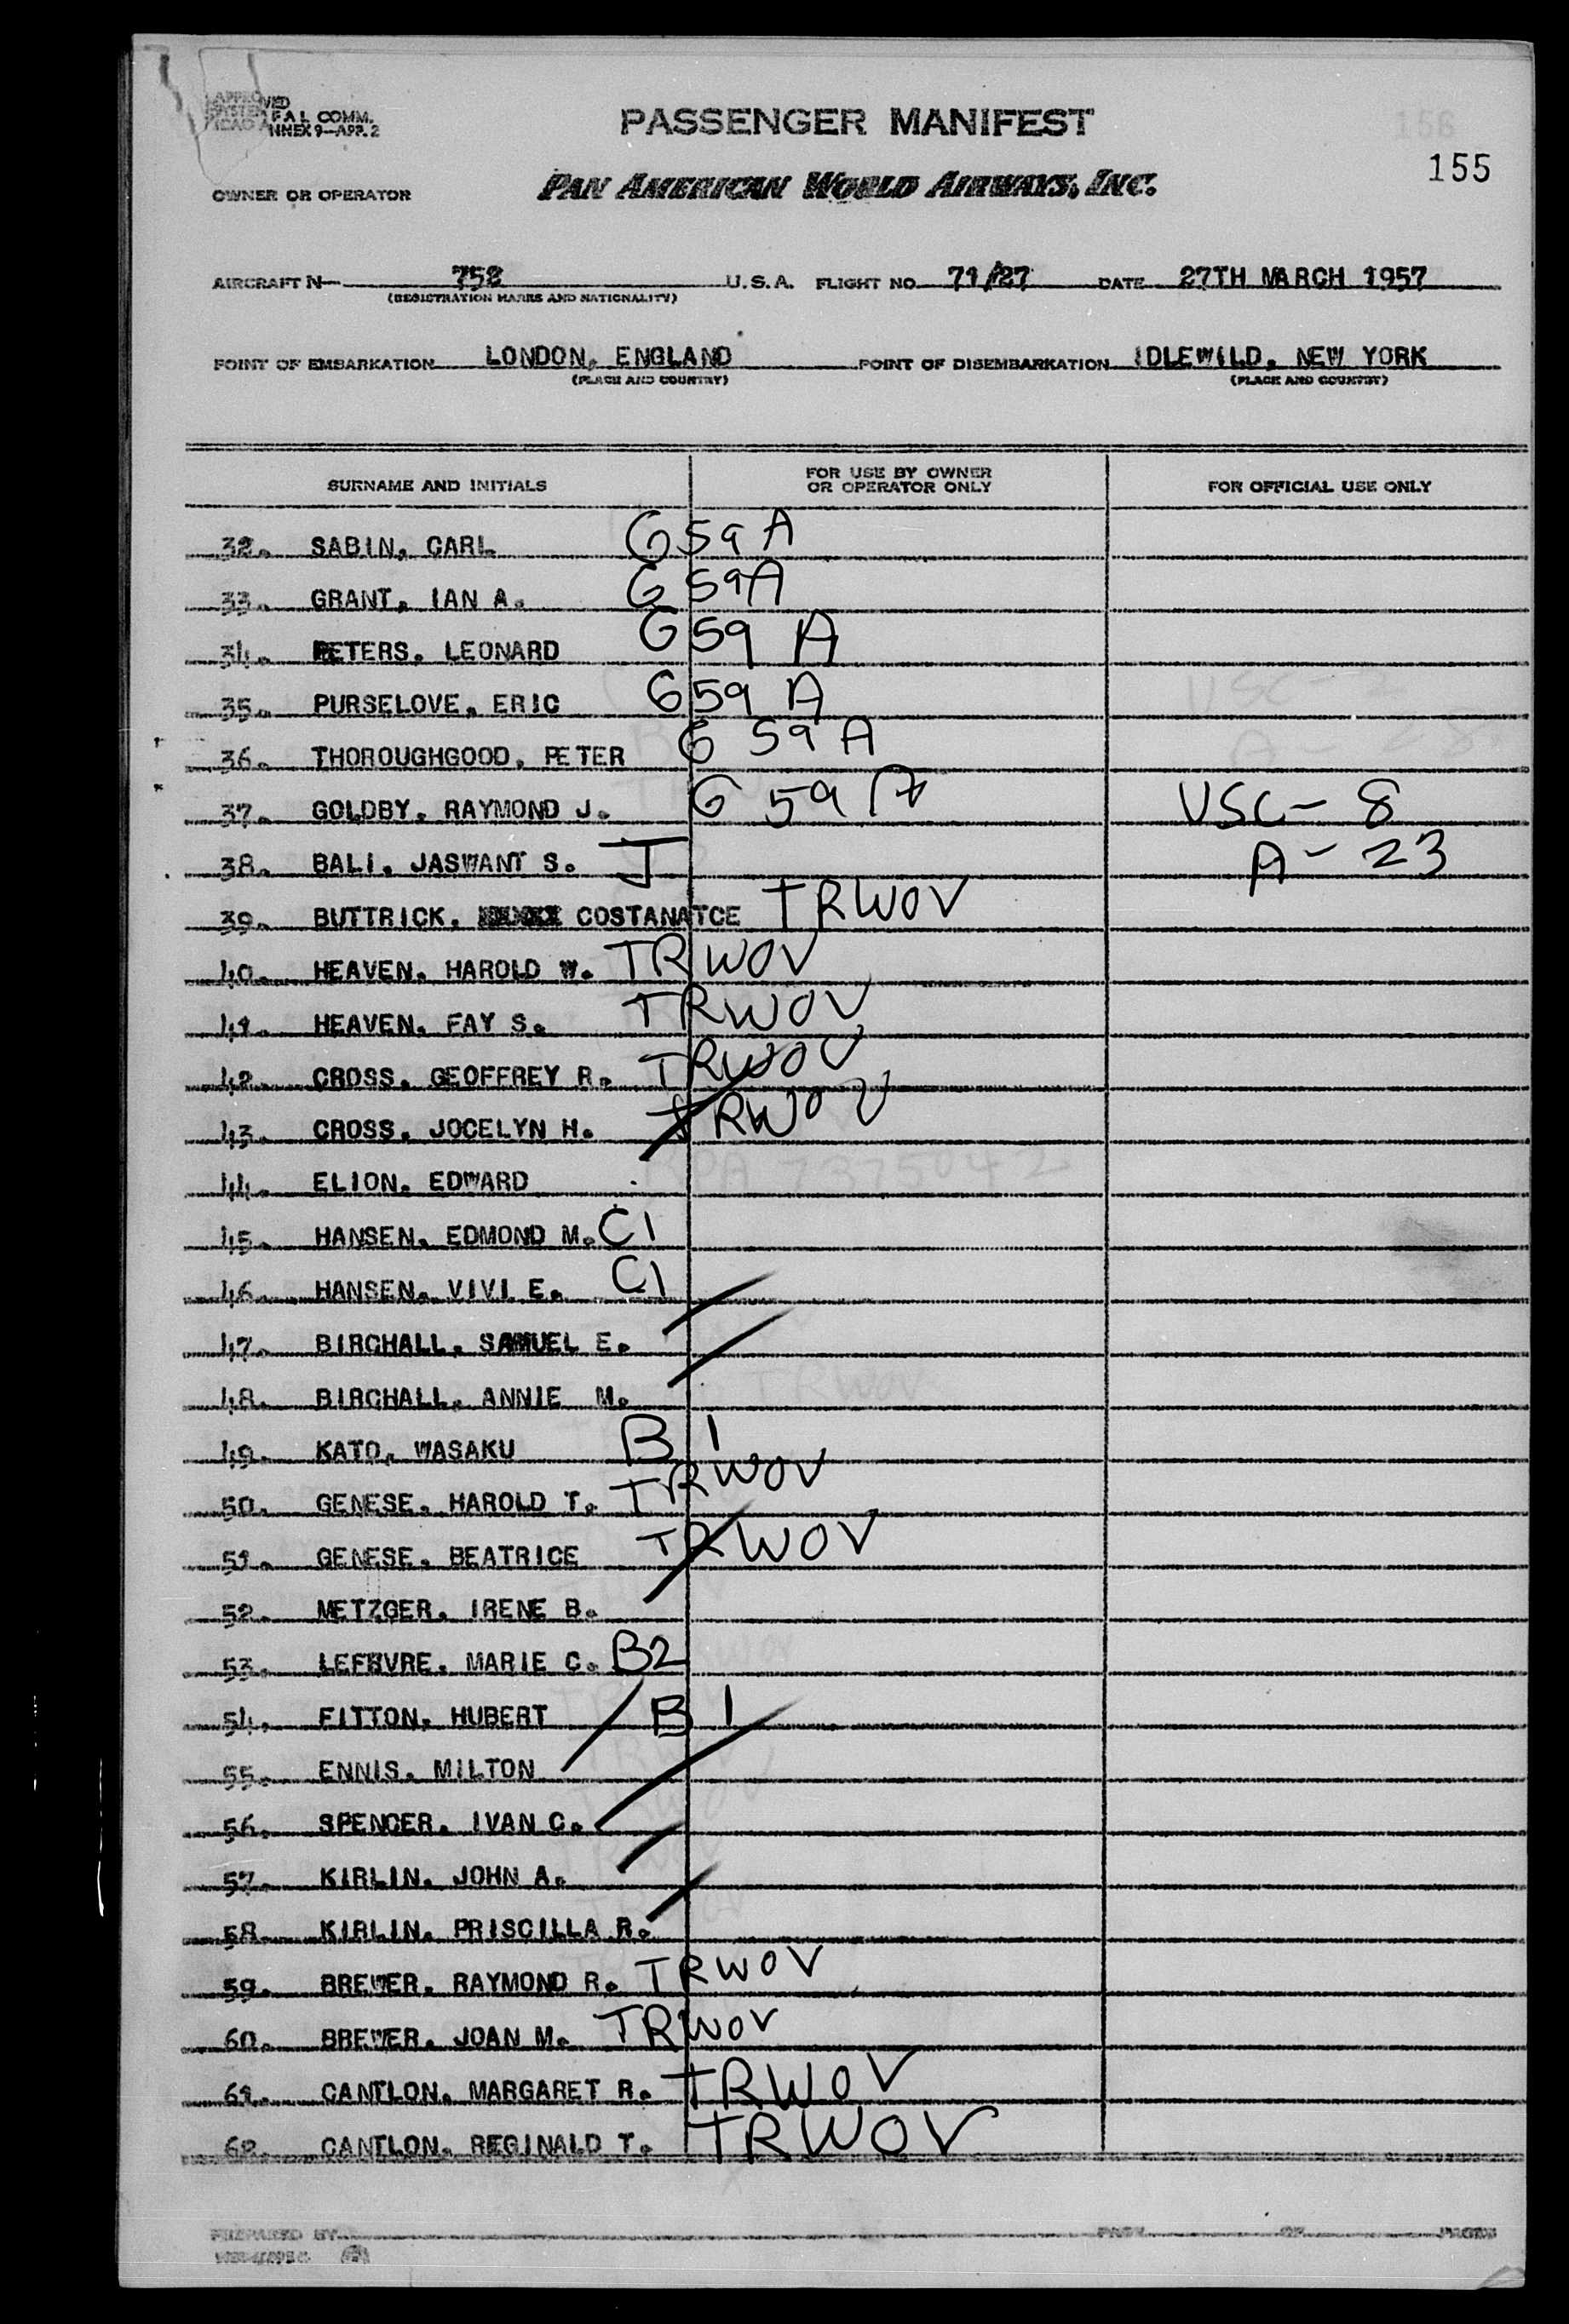 APPROVED
SYSTEM FAL COMM.
ICAO ANNEX 9—APP. 2
PASSENGER MANIFEST
156
155
OWNER OR OPERATOR PAN AMERICAN WORLD AIRWAYS, INC.
AIRCRAFT N— 752 U.S.A. FLIGHT NO 71/27 DATE 27TH MARCH 1957
(REGISTRATION MARKS AND NATIONALITY)
POINT OF EMBARKATION LONDON, ENGLAND POINT OF DISEMBARKATION IDLEWILD, NEW YORK
(PLACE AND COUNTRY) (PLACE AND COUNTRY)
SURNAME AND INITIALS FOR USE BY OWNER OR OPERATOR ONLY FOR OFFICIAL USE ONLY
32. SABIN, CARL G59A
33. GRANT, IAN A. G59A
34. PETERS, LEONARD G59 A
35. PURSELOVE, ERIC G59 A
36. THOROUGHGOOD, PETER G 59A
37. GOLDBY, RAYMOND J. G 59 A USC- 8
38. BALI, JASWANT S. J A- 23
39. BUTTRICK, COSTANATCE TRWOV
40. HEAVEN, HAROLD W. TRWOV
41. HEAVEN, FAY S. TRWOV
42. CROSS, GEOFFREY R. TRWOV
43. CROSS, JOCELYN H. TRWOV
44. ELION, EDWARD
45. HANSEN, EDMOND M. C1
46. HANSEN, VIVI E. C1
47. BIRCHALL, SAMUEL E.
48. BIRCHALL, ANNIE M.
49. KATO, WASAKU B 1
50. GENESE, HAROLD T. TRWOV
51. GENESE, BEATRICE TRWOV
52. METZGER, IRENE B.
53. LEFEVRE, MARIE C. B2
54. FITTON, HUBERT B 1
55. ENNIS, MILTON
56. SPENCER, IVAN C.
57. KIRLIN, JOHN A.
58. KIRLIN, PRISCILLA R.
59. BREWER, RAYMOND R. TRWOV
60. BREWER, JOAN M. TRWOV
61. CANTLON, MARGARET R. TRWOV
62. CANTLON, REGINALD T. TRWOV
PREPARED BY PAGE OF PAGES